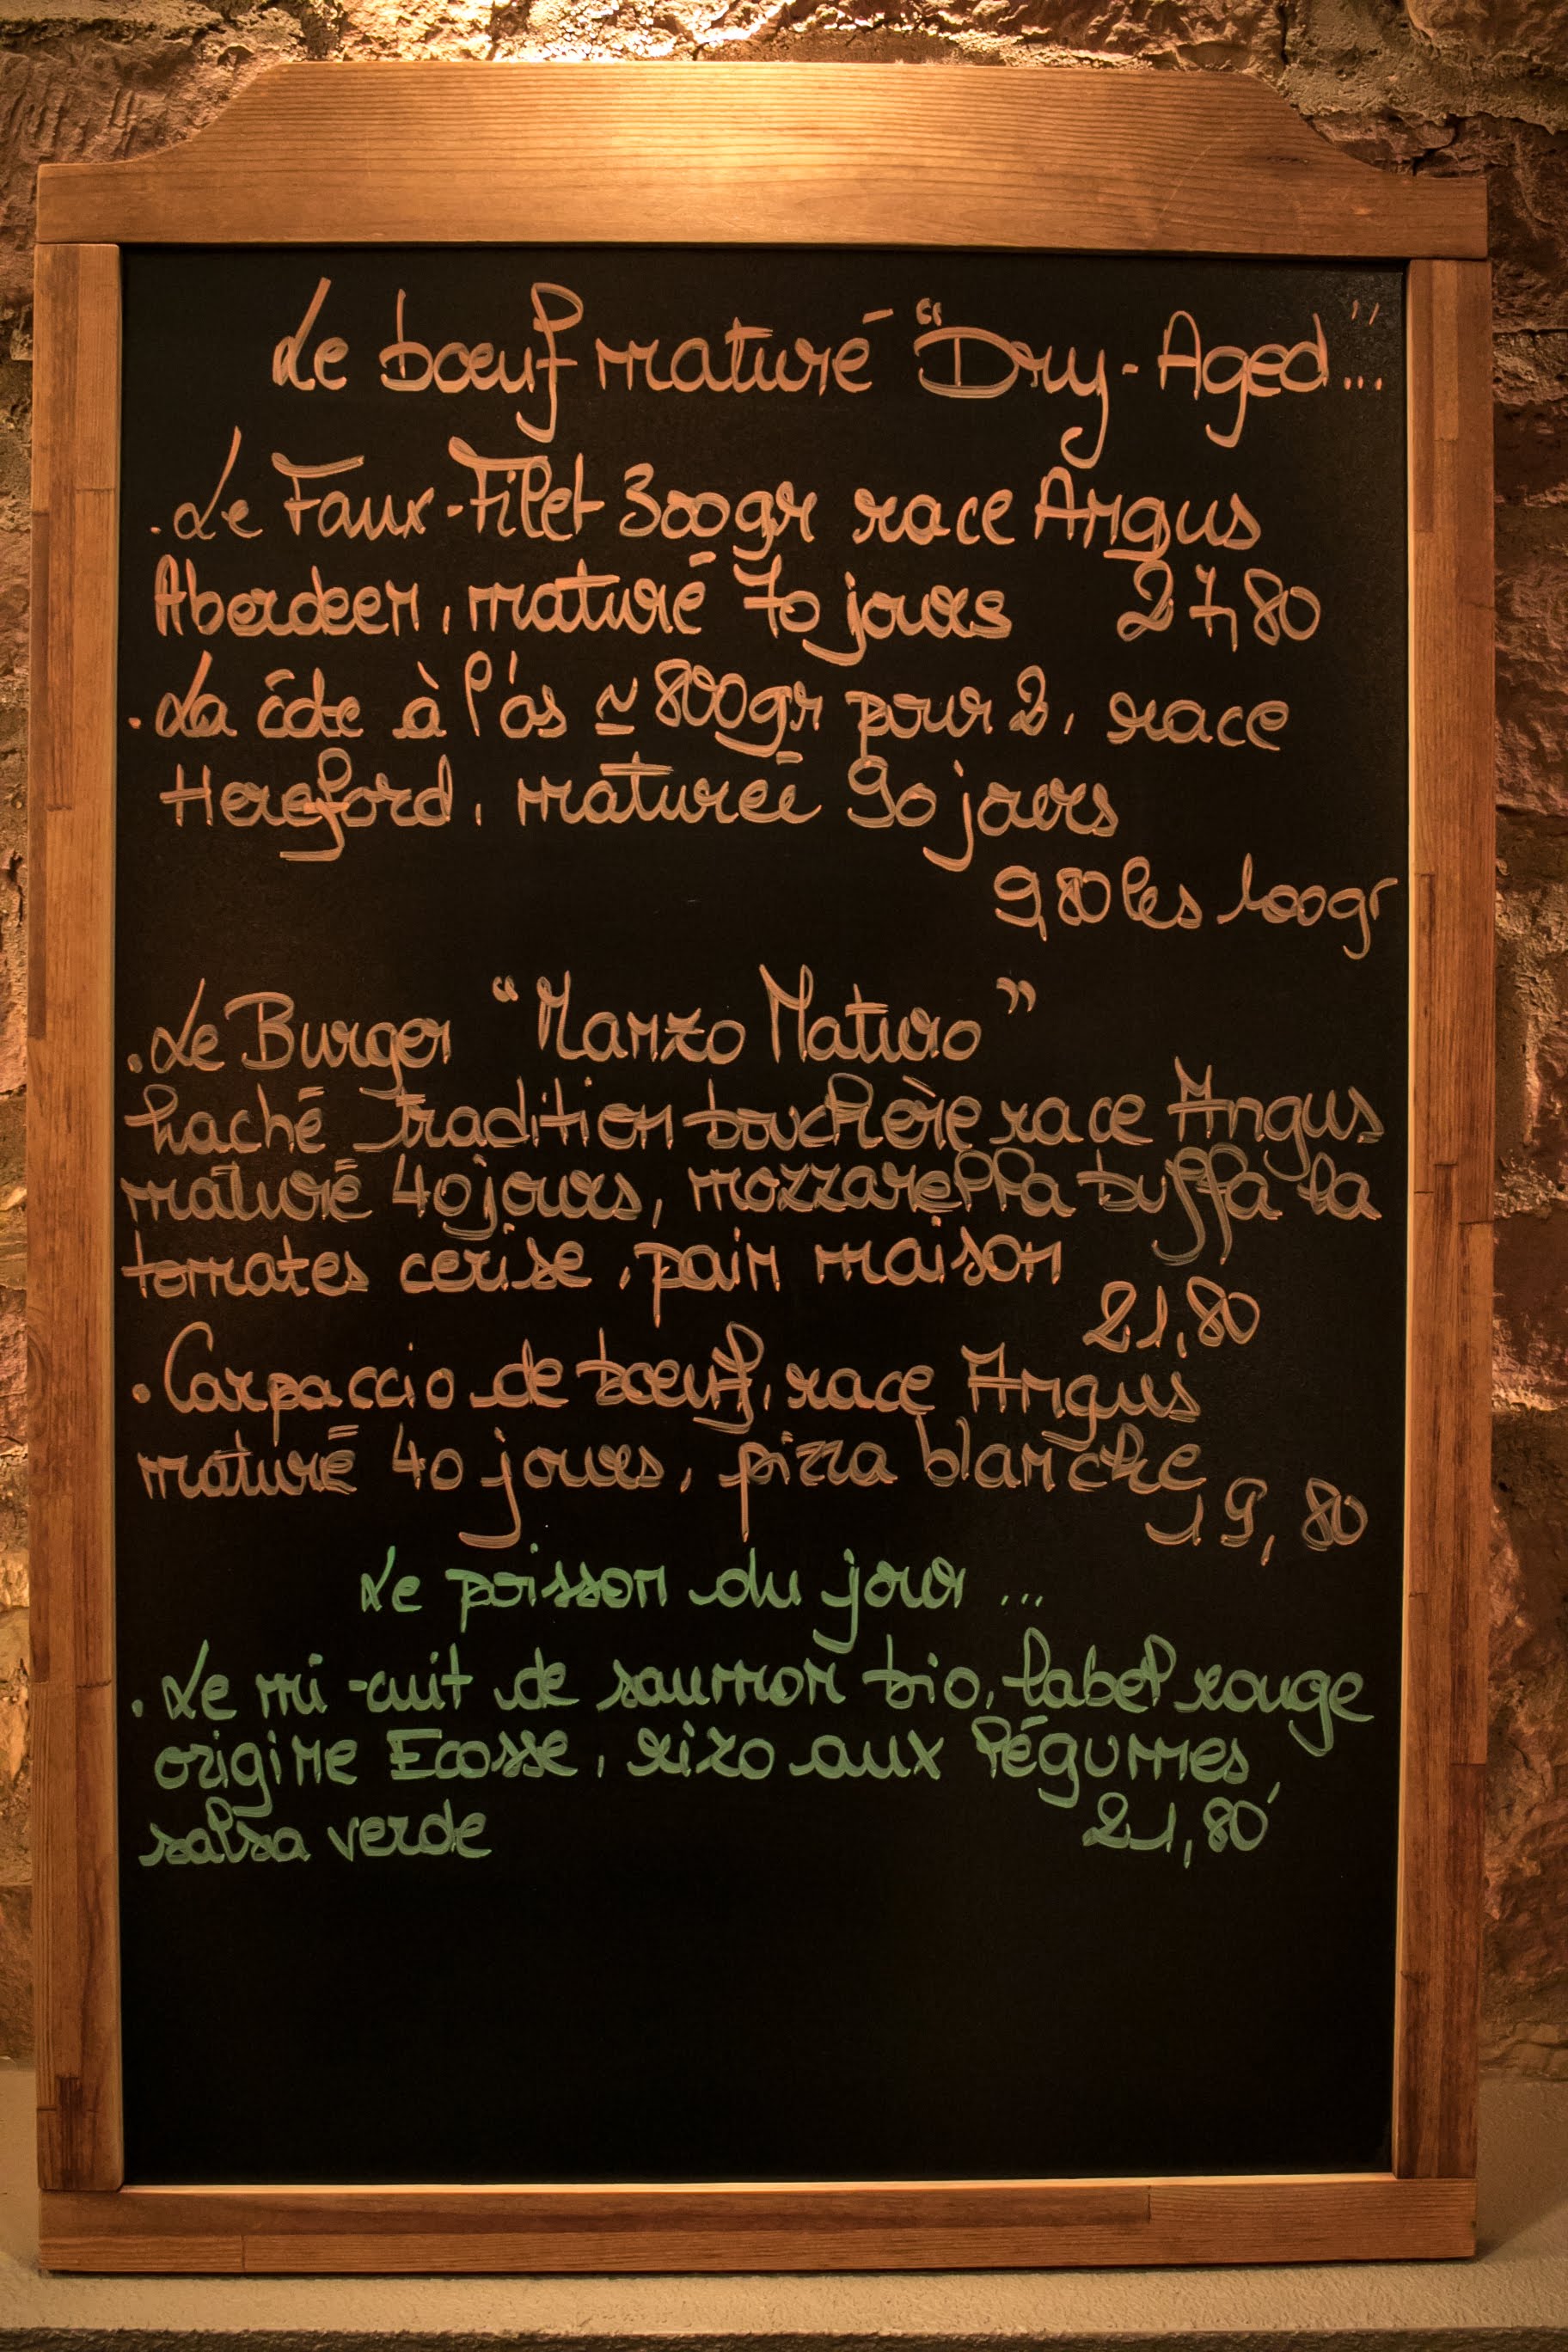 Le bœuf maturé "Dry-Aged..."
. Le Faux-Filet 300gr race Angus
Aberdeen, maturé 70 jours 27,80
. La côte à l'os ≃ 800gr pour 2, race
Hereford, maturée 90 jours
9,80 les 100gr
. Le Burger "Manzo Maturo"
haché Tradition bouchère race Angus
maturé 40 jours, mozzarella buffala
tomates cerise, pain maison
21,80
. Carpaccio de bœuf, race Angus
maturé 40 jours, pizza blanche
19,80
Le poisson du jour ...
. Le mi-cuit de saumon bio, label rouge
origine Ecosse, rizo aux légumes,
salsa verde 21,80